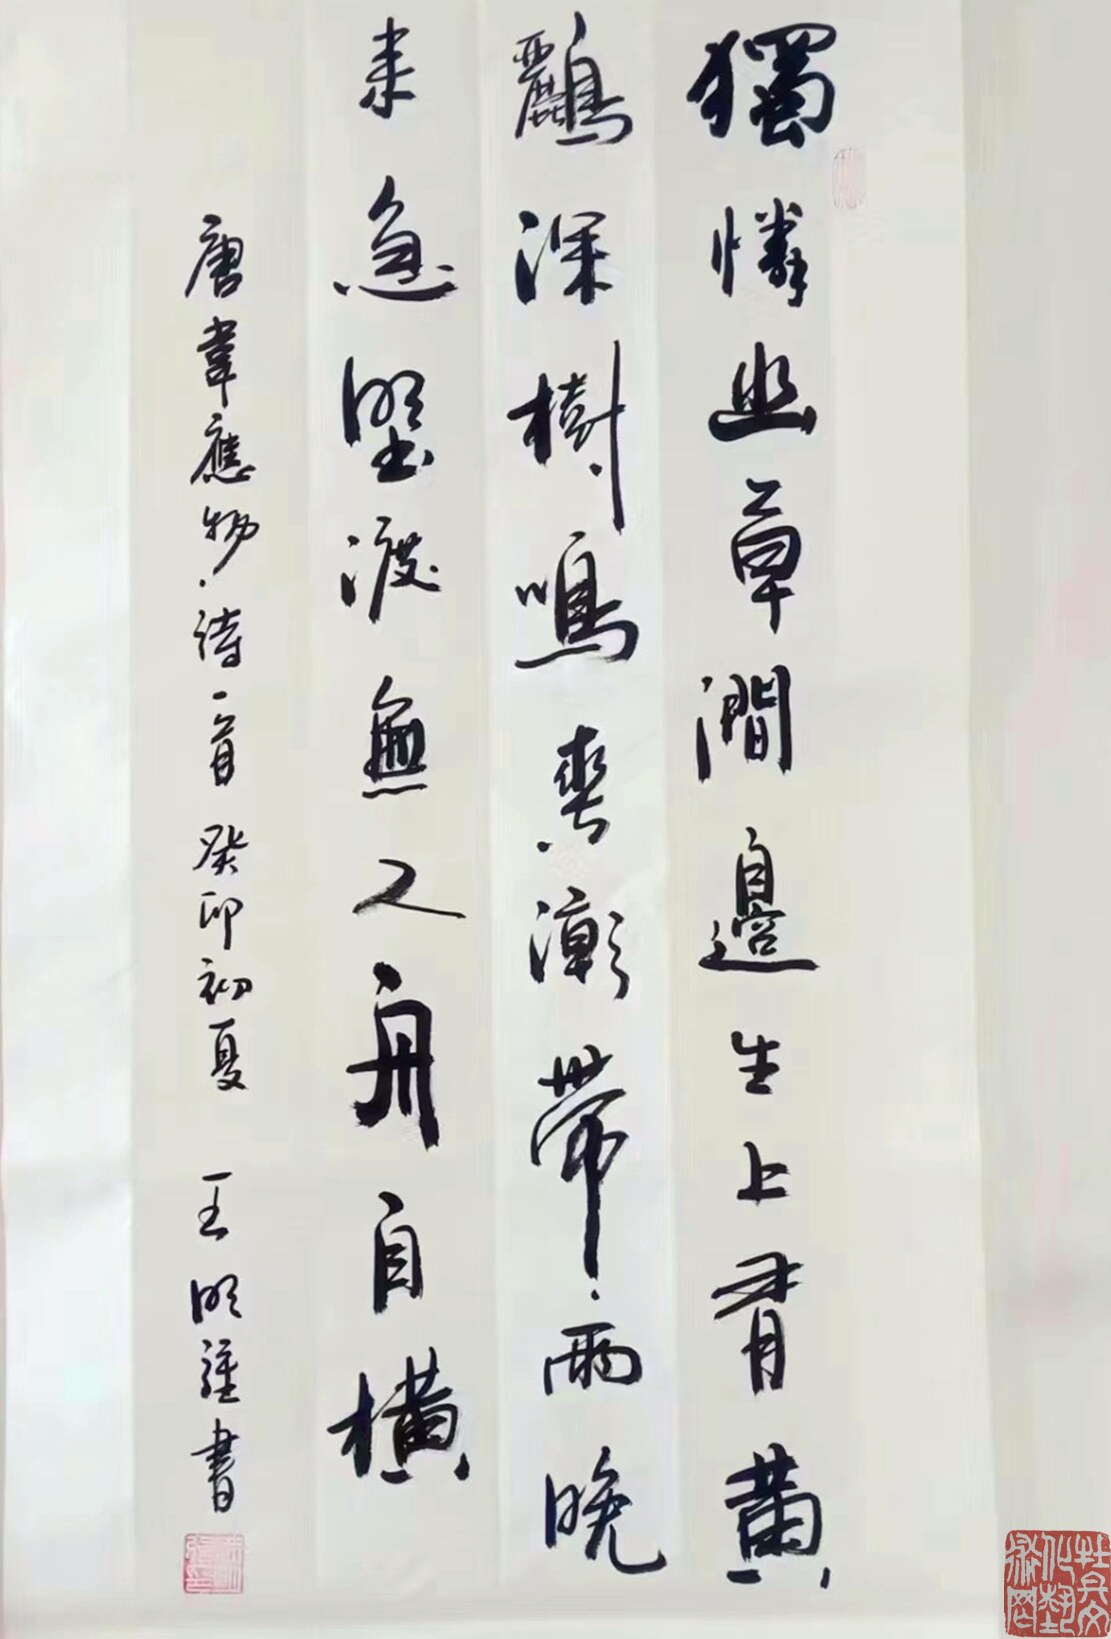 獨憐幽草澗邊生上有黃
鸝深樹鳴春潮帶雨晚
来急野渡無人舟自橫
唐韋應物詩一首 癸卯初夏 王明書
杜兵文化藝術网